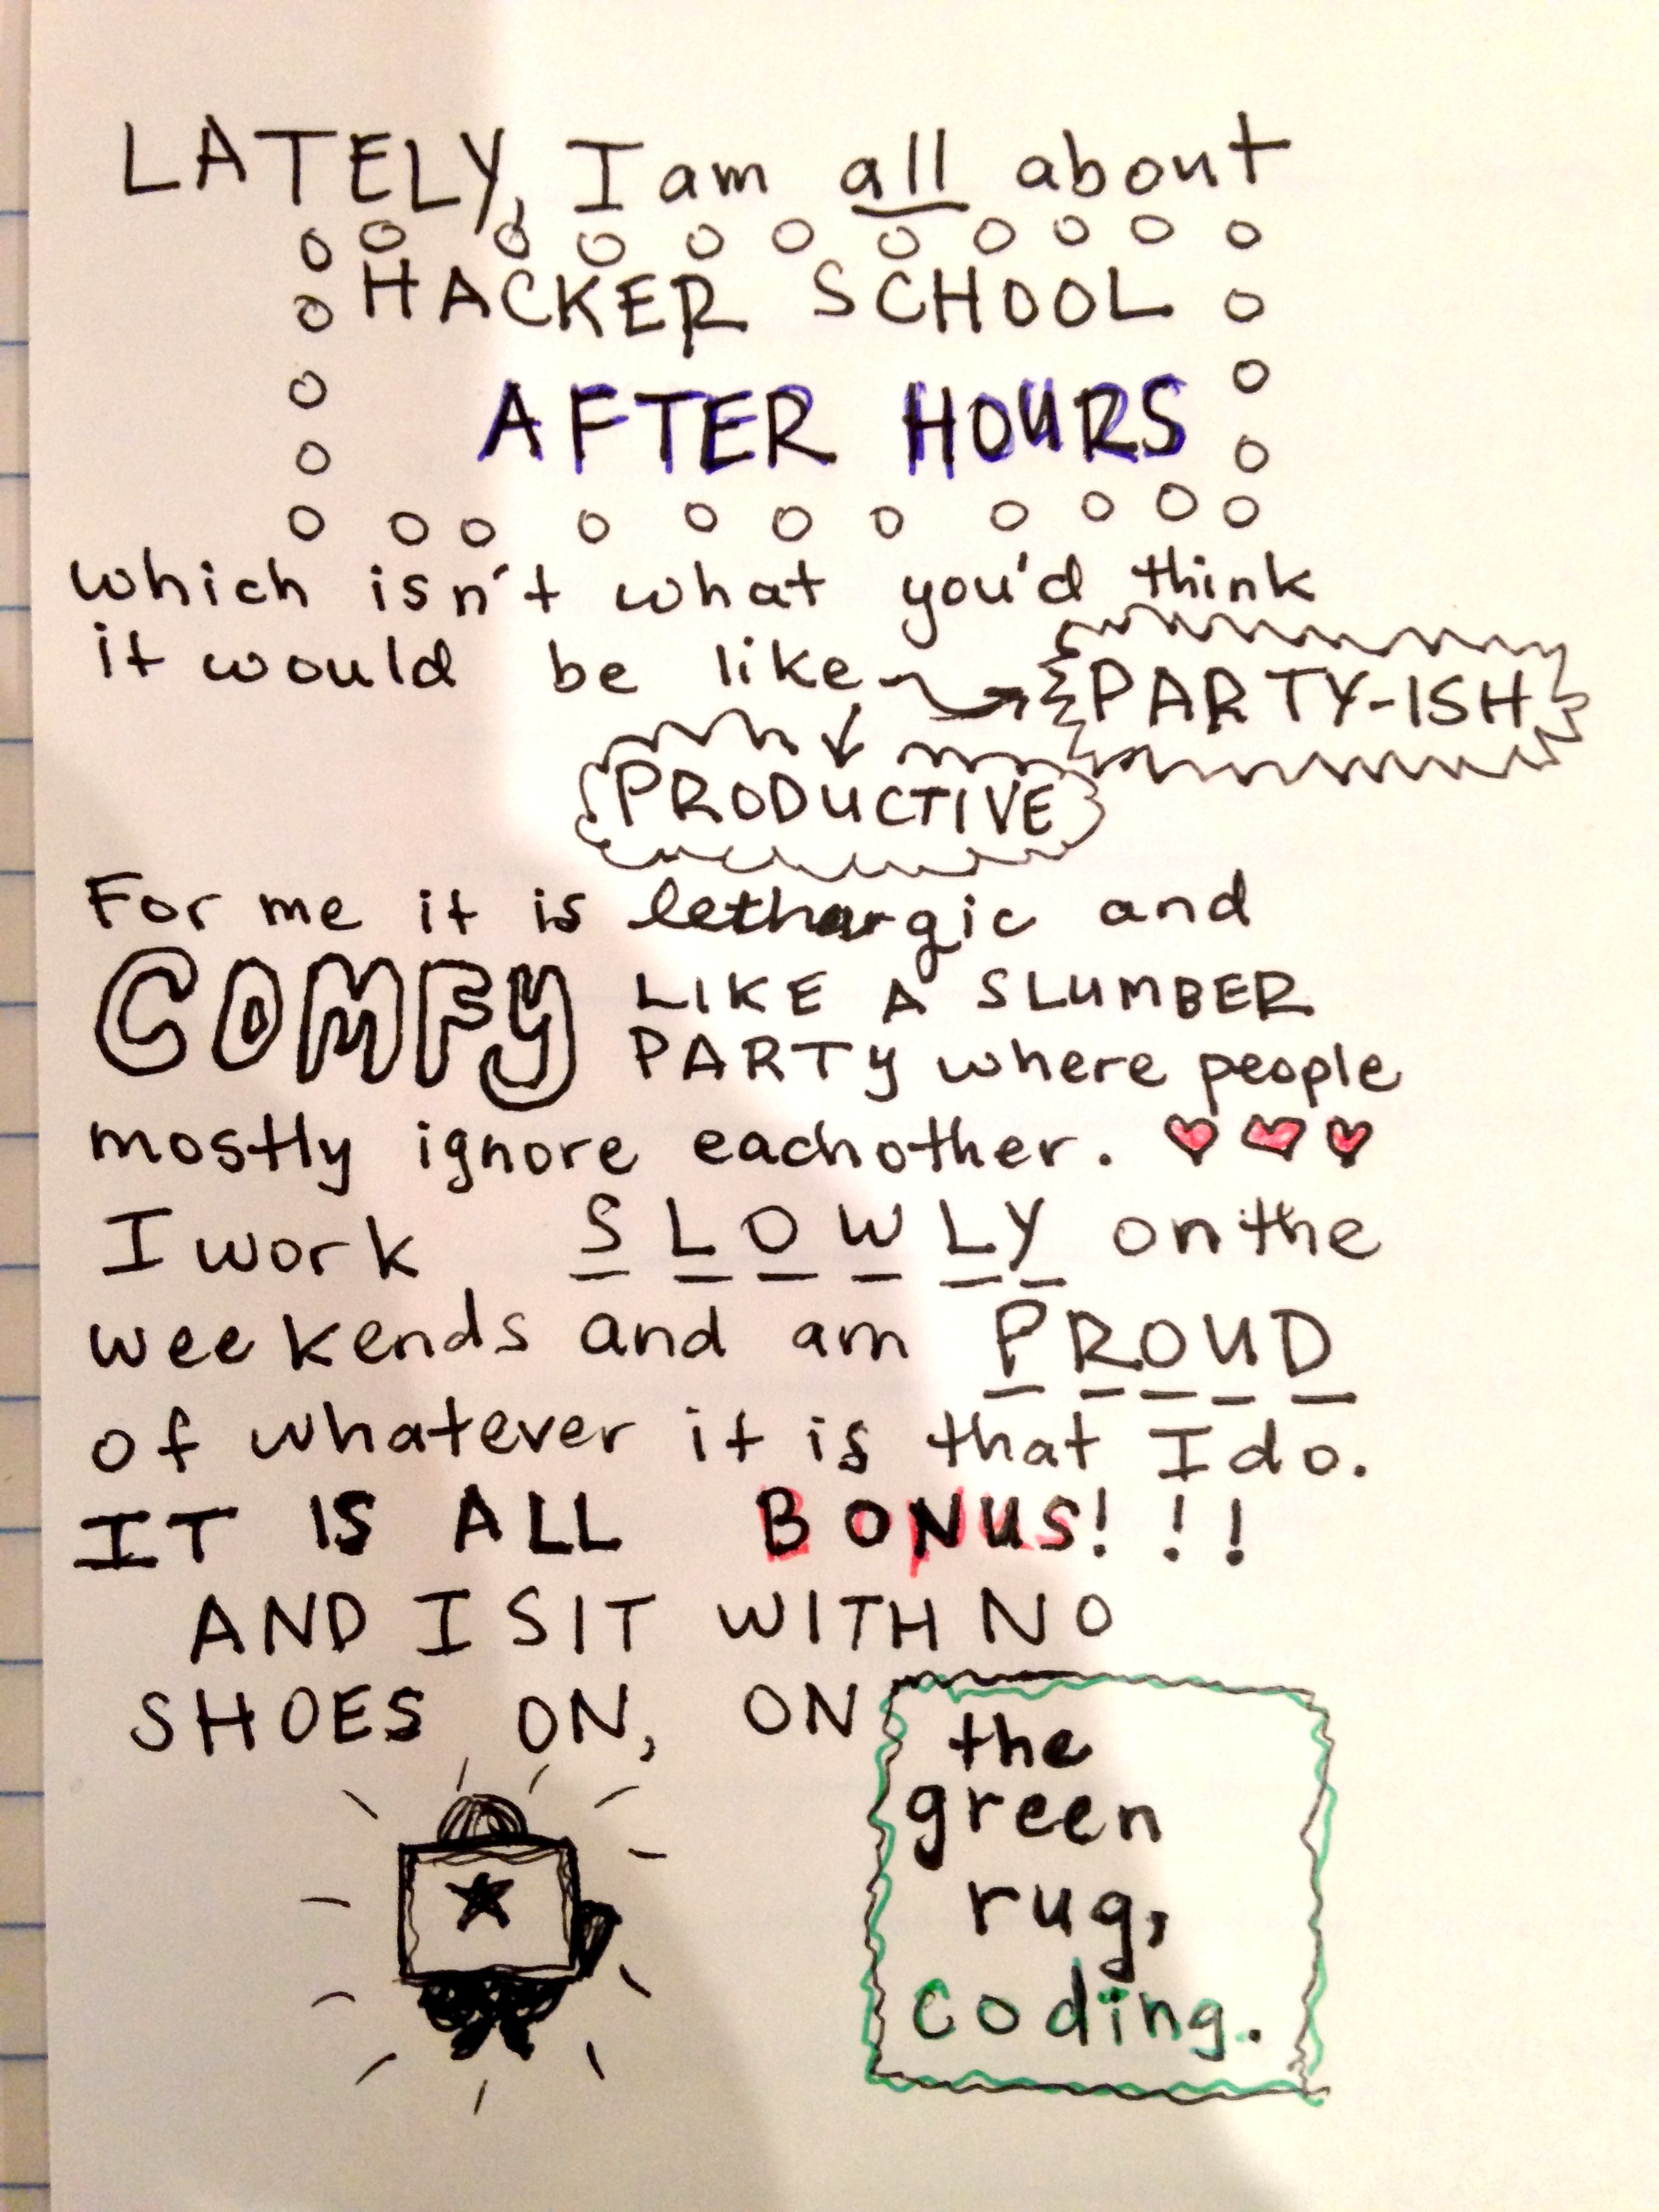 LATELY, I am all about
HACKER SCHOOL
AFTER HOURS
which isn't what you'd think
it would be like PARTY-ISH
PRODUCTIVE
For me it is lethargic and
COMFY LIKE A SLUMBER
PARTY where people
mostly ignore eachother.
I work SLOWLY on the
weekends and am PROUD
of whatever it is that I do.
IT IS ALL BONUS!!!
AND I SIT WITH NO
SHOES ON, ON
the
green
rug,
coding.